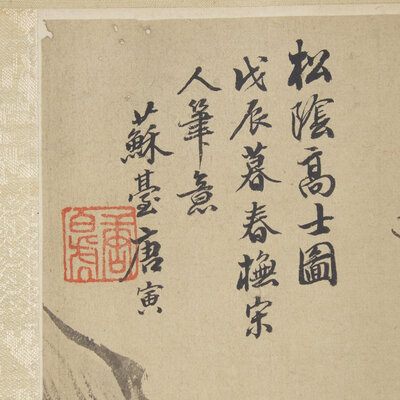 松陰高士圖
戊辰暮春橅宋
人筆意
蘇臺唐寅
唐白虎